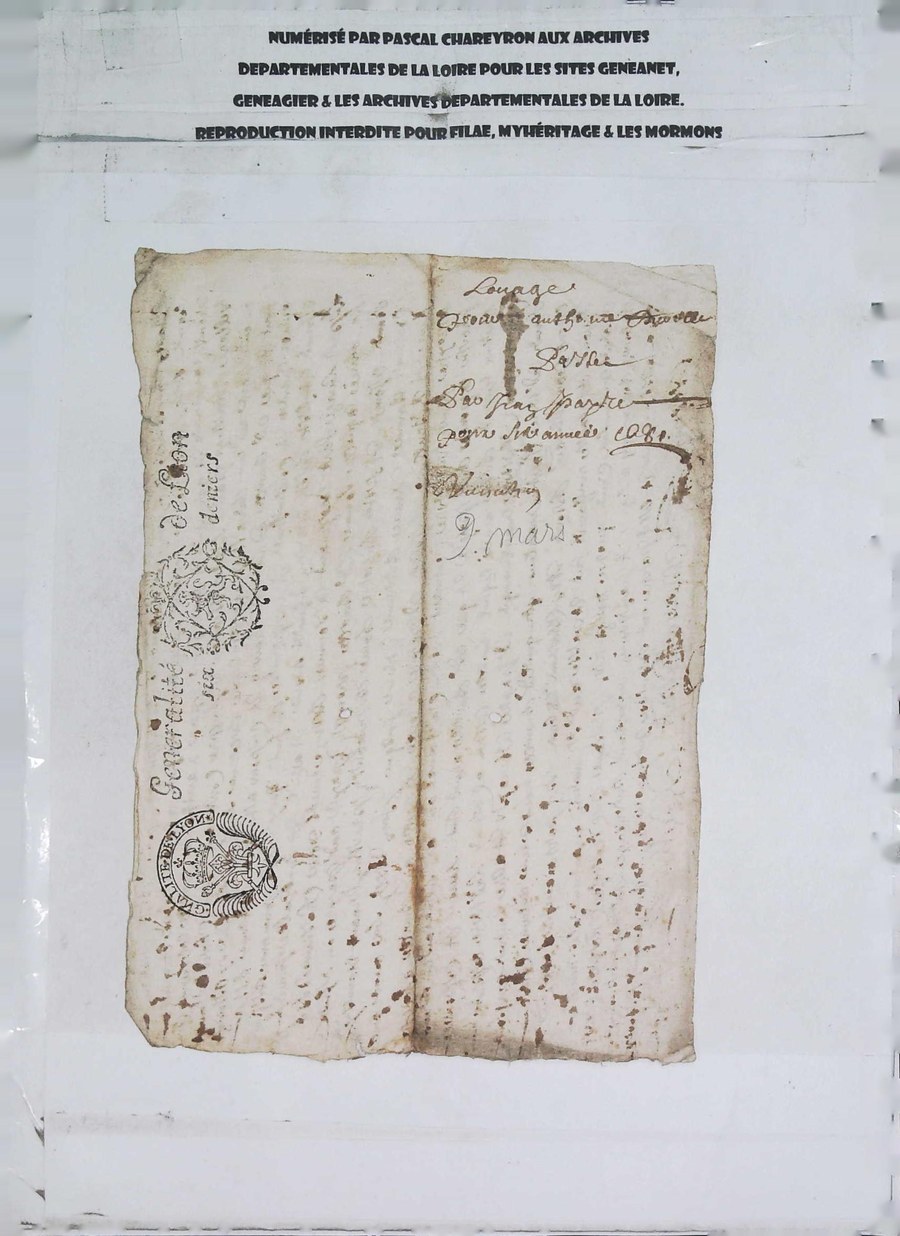 NUMÉRISÉ PAR PASCAL CHAREYRON AUX ARCHIVES
DEPARTEMENTALES DE LA LOIRE POUR LES SITES GENEANET,
GENEAGIER & LES ARCHIVES DEPARTEMENTALES DE LA LOIRE.
REPRODUCTION INTERDITE POUR FILAE, MYHÉRITAGE & LES MORMONS
Louage
pour anthoine
Passé
Par
pour six année 1681.
9. mars
Generalité de Lion
six deniers
GNALITE·DE·LYON